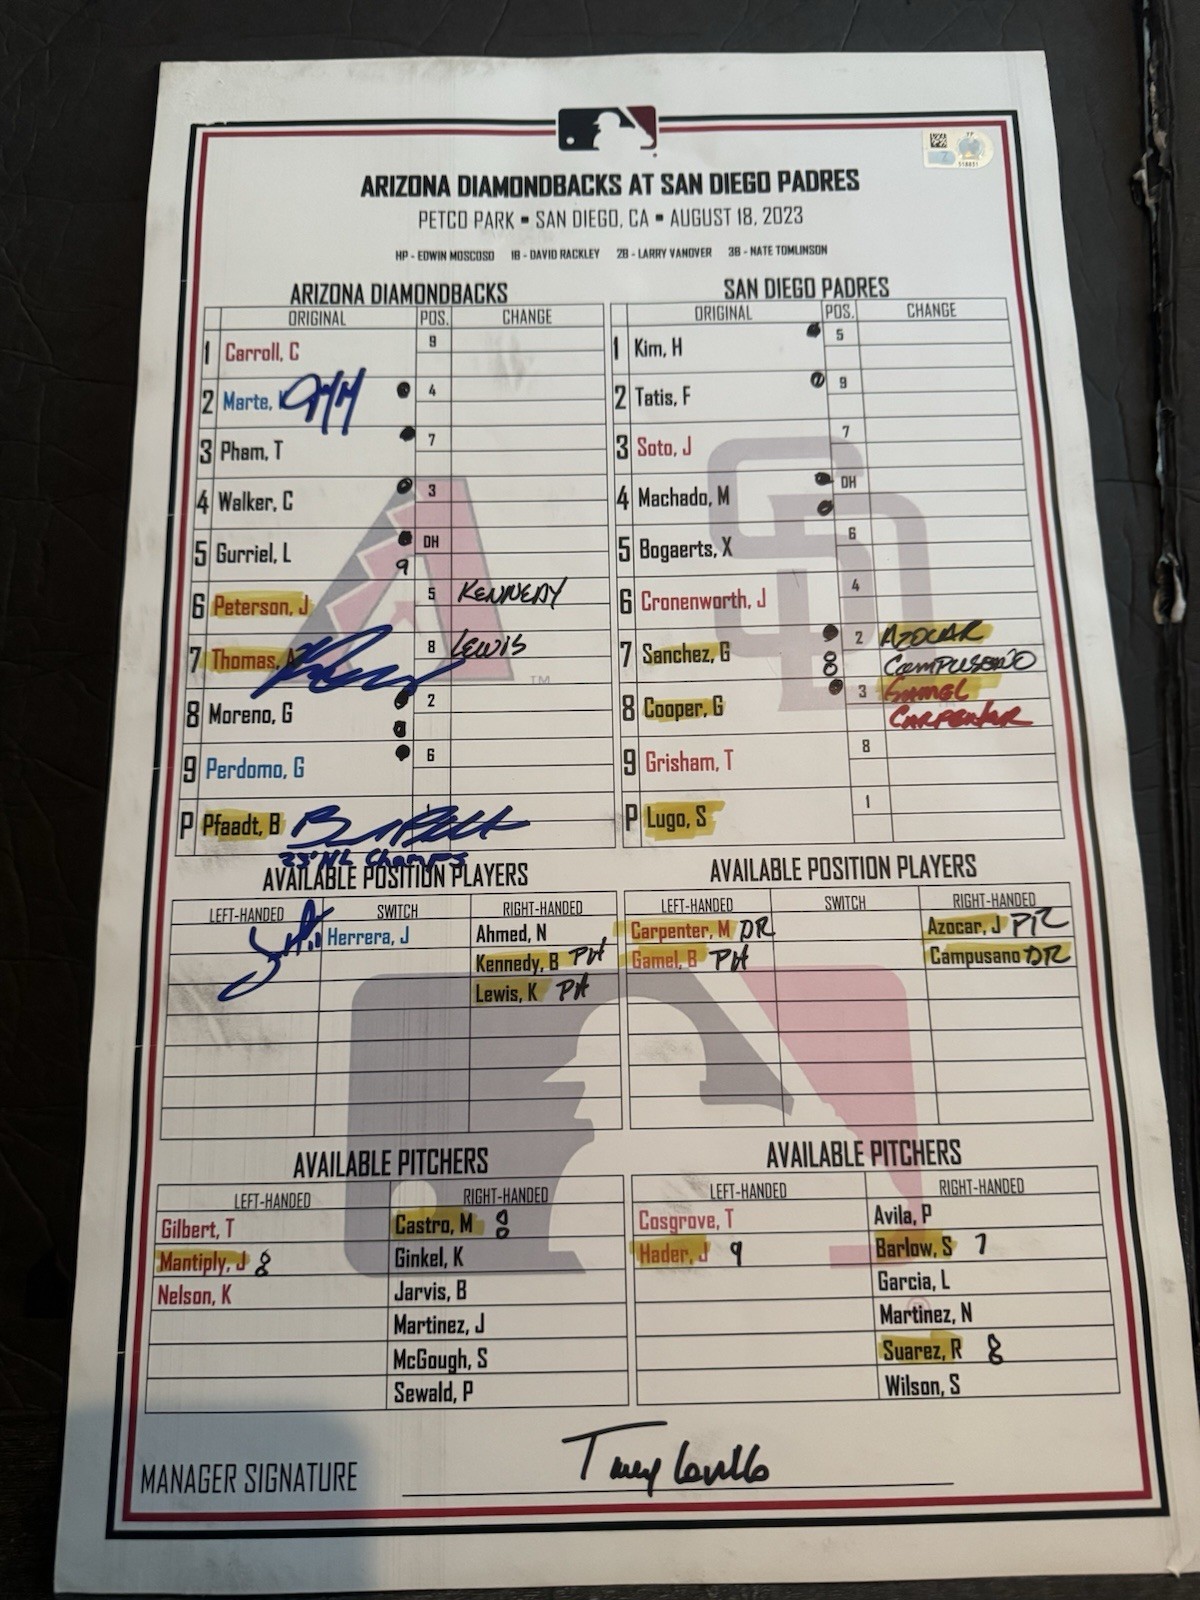 ARIZONA DIAMONDBACKS AT SAN DIEGO PADRES
PETCO PARK ▪ SAN DIEGO, CA ▪ AUGUST 18, 2023
HP - EDWIN MOSCOSO 1B - DAVID RACKLEY 2B - LARRY VANOVER 3B - NATE TOMLINSON
ARIZONA DIAMONDBACKS
ORIGINAL POS. CHANGE
1 Carroll, C 9
2 Marte, 4
3 Pham, T 7
4 Walker, C 3
5 Gurriel, L DH
9
6 Peterson, J 5 KENNEDY
7 Thomas, 8 LEWIS
TM
8 Moreno, G 2
9 Perdomo, G 6
P Pfaadt, B 1
23' NL Champs
SAN DIEGO PADRES
ORIGINAL POS. CHANGE
1 Kim, H 5
2 Tatis, F 9
3 Soto, J 7
4 Machado, M DH
5 Bogaerts, X 6
6 Cronenworth, J 4
7 Sanchez, G 2 AZOCAR
8 CAMPUSANO
8 Cooper, G 3 GAMEL
CARPENTER
9 Grisham, T 8
P Lugo, S 1
AVAILABLE POSITION PLAYERS
LEFT-HANDED SWITCH RIGHT-HANDED
Herrera, J Ahmed, N
Kennedy, B PH
Lewis, K PH
AVAILABLE POSITION PLAYERS
LEFT-HANDED SWITCH RIGHT-HANDED
Carpenter, M DR Azocar, J PR
Gamel, B PH Campusano DR
AVAILABLE PITCHERS
LEFT-HANDED RIGHT-HANDED
Gilbert, T Castro, M 8
Mantiply, J 8 Ginkel, K
Nelson, K Jarvis, B
Martinez, J
McGough, S
Sewald, P
AVAILABLE PITCHERS
LEFT-HANDED RIGHT-HANDED
Cosgrove, T Avila, P
Hader, J 9 Barlow, S 7
Garcia, L
Martinez, N
Suarez, R 8
Wilson, S
MANAGER SIGNATURE Torey Lovullo